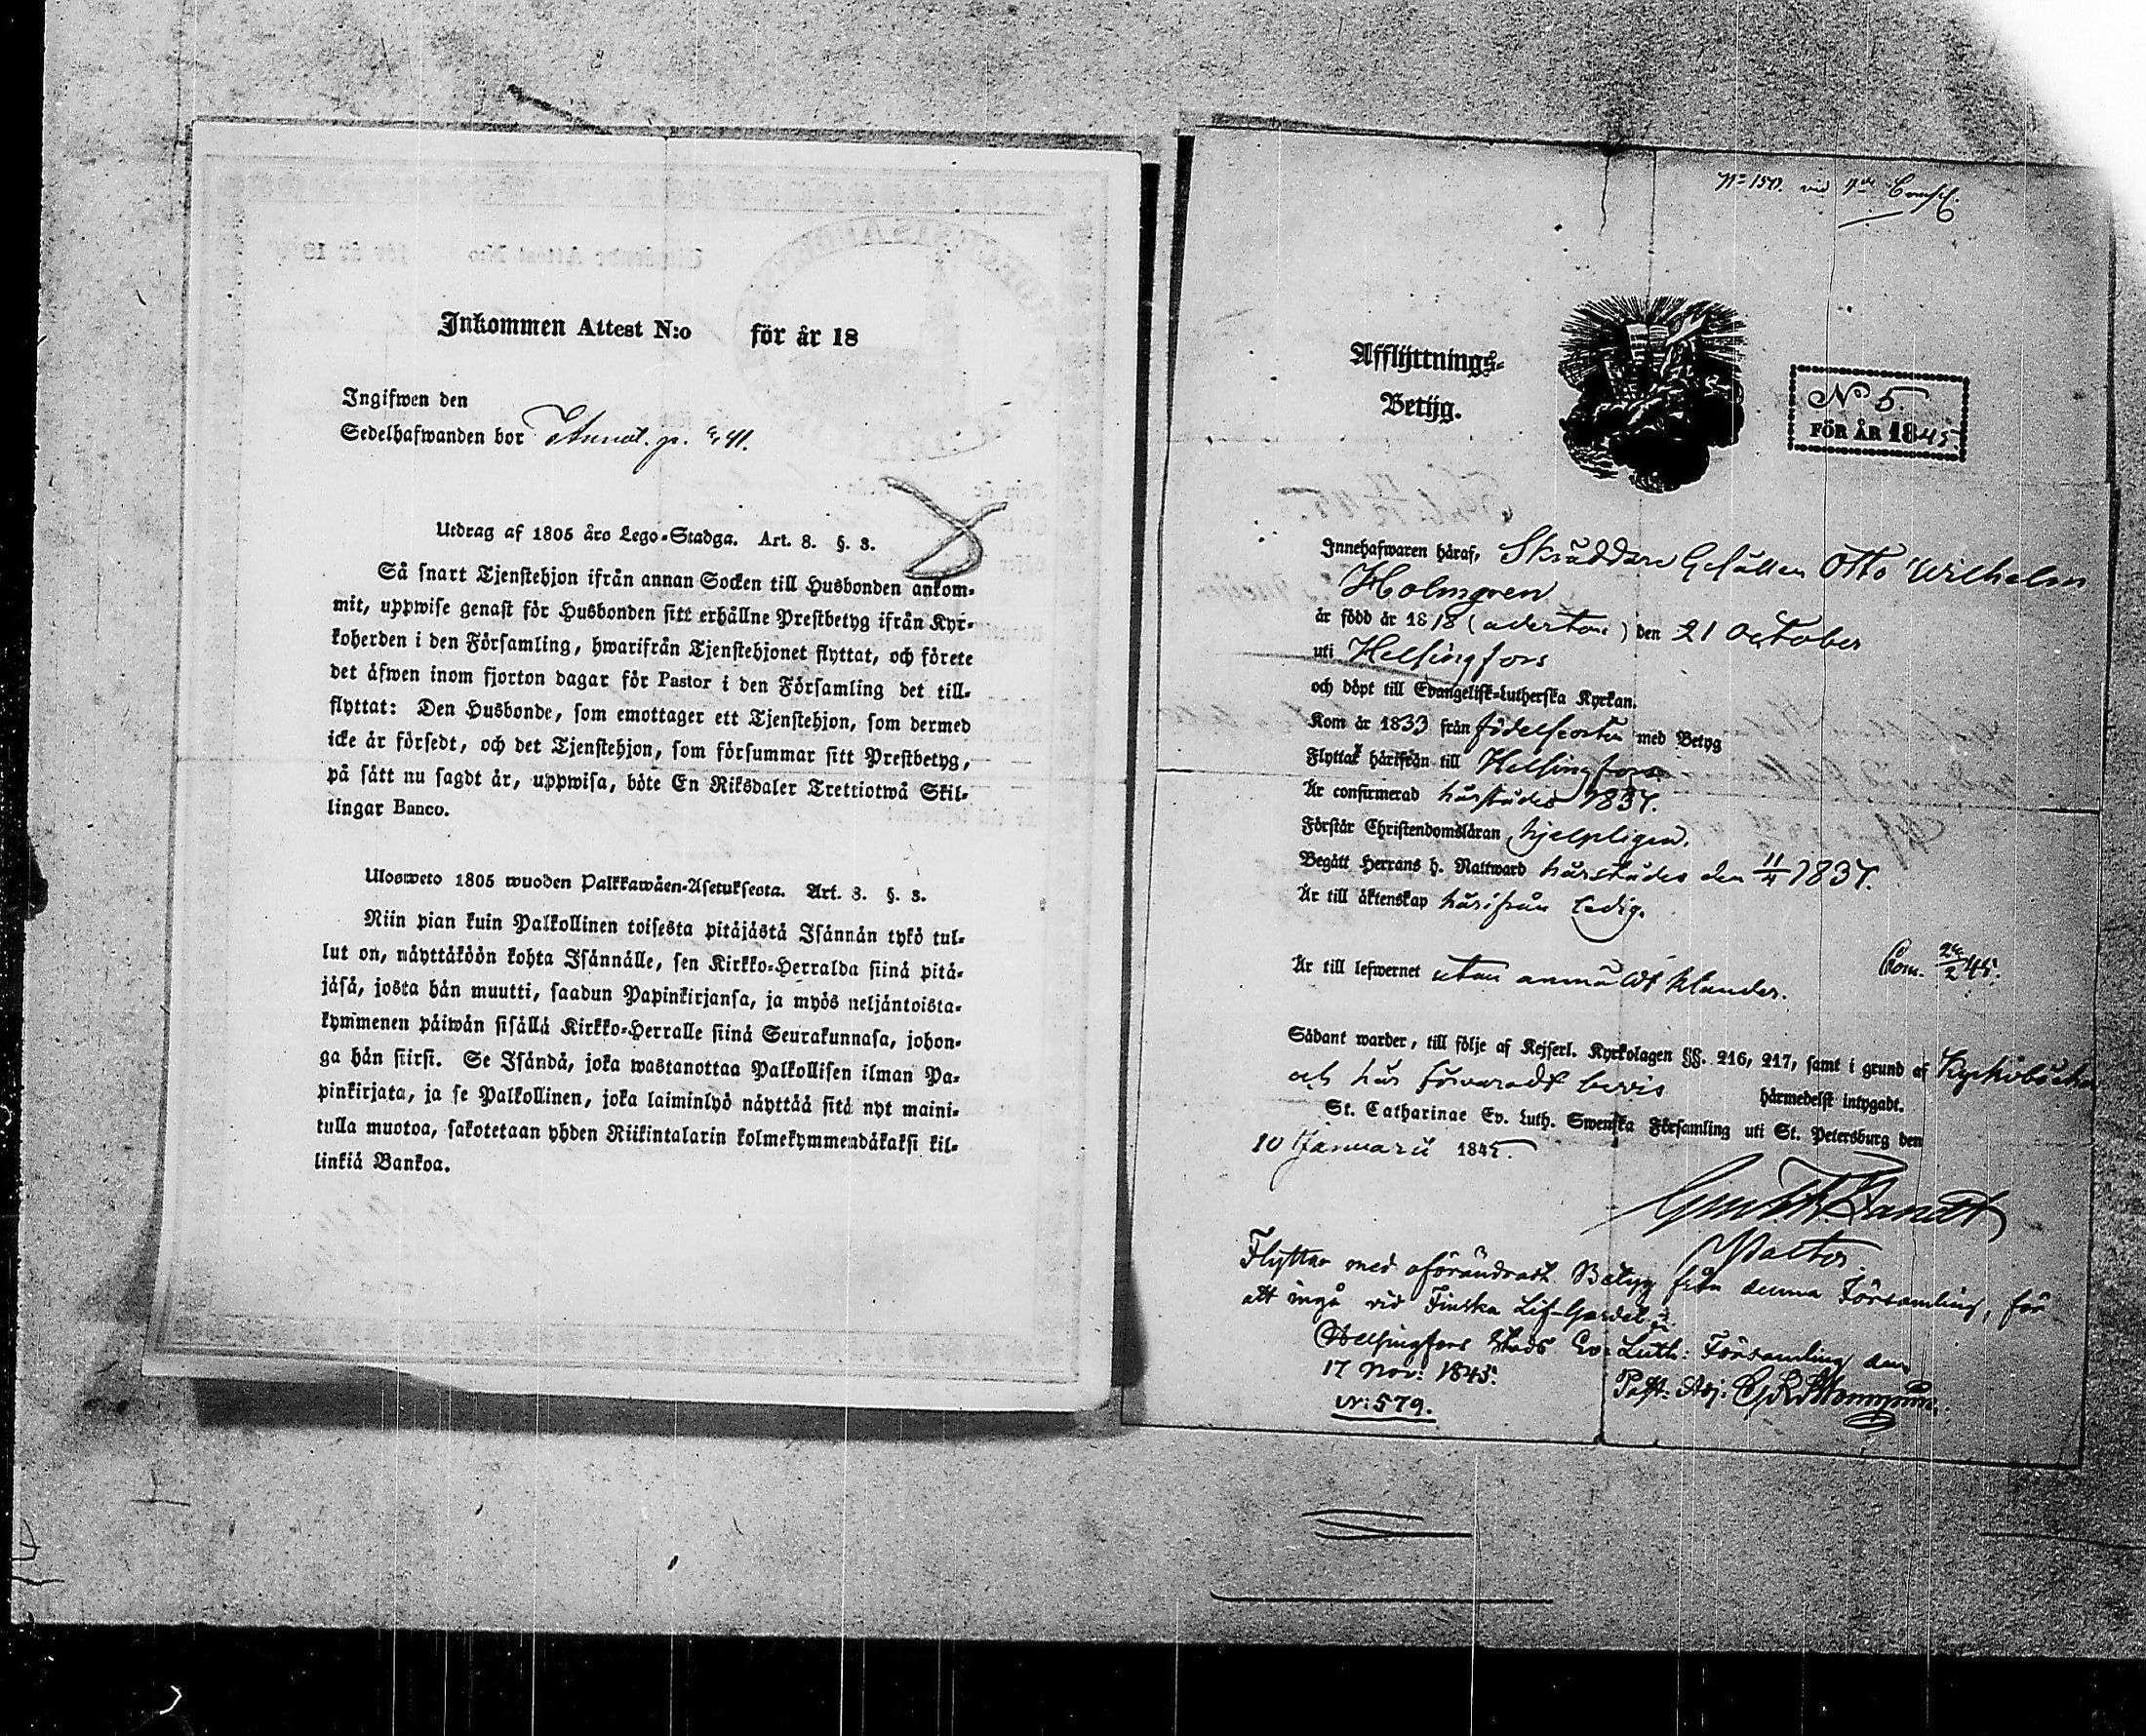 Inkommen Attest N:o för år 18
Ingifwen den
Sedelhafwanden bor
Utdrag af 1805 års Lego-Stadga. Art. 8. §. 3.
Så snart Tjenstehjon ifrån annan Socken till Husbonden ankom-
mit, uppwise genast för Husbonden sitt erhållne Prestbetyg ifrån Kyr-
koherden i den Församling, hwarifrån Tjenstehjonet flyttat, och förete
det äfwen inom fjorton dagar för Pastor i den Församling det till-
flyttat: Den Husbonde, som emottager ett Tjenstehjon, som dermed
icke är försedt, och det Tjenstehjon, som försummar sitt Prestbetyg,
på sätt nu sagdt är, uppwisa, böte En Riksdaler Trettiotwå Skil-
lingar Banco.
Ulosweto 1805 wuoden Palkkawäen-Asetuksesta. Art. 3. §. 3.
Niin pian kuin Palkollinen toisesta pitäjästä Isännän tykö tul-
lut on, näyttäköön kohta Isännälle, sen Kirkko-Herralda siinä pitä-
jäsä, josta hän muutti, saadun Papinkirjansa, ja myös neljäntoista-
kymmenen päiwän sisällä Kirkko-Herralle siinä Seurakunnasa, johon-
ga hän siirsi. Se Isändä, joka wastanottaa Palkollisen ilman Pa-
pinkirjata, ja se Palkollinen, joka laiminlyö näyttää sitä nyt maini-
tulla muotoa, sakotetaan yhden Riikintalarin kolmekymmendäkaksi kil-
linkiä Bankoa.
Afflyttnings-
Betyg.
No 5.
FÖR ÅR 1845.
Innehafwaren häraf, Skräddare Gesällen Otto Wilhelm
Holmgren
är född år 1818 (aderton) den 21 October
uti Helsingfors
och döpt till Evangelisk-Lutherska Kyrkan.
Kom år 1833 från födelseorten med Betyg
Flyttar härifrån till Helsingfors
Är confirmerad härstädes 1837.
Förstår Christendomsläran hjelpligen.
Begått Herrans h. Nattward härstädes den 11/4 1837.
Är till äktenskap härifrån ledig.
Är till lefwernet utan anmäldt klander.
Com. 24/2 45.
Sådant warder, till följe af Kejserl. Kyrkolagen §§. 216, 217, samt i grund af Kyrkoböcker
och här förvaradt bevis härmedelst intygadt.
St. Catharinae Ev. Luth. Swenska Församling uti St. Petersburg den
10 Januarii 1845.
Pastor.
Flyttar med oförändradt Betyg från denna Församling, för
att ingå vid Finska Lif-Gardet
Helsingfors Stads Ev: Luth: Församling den
17 Nov: 1845.
Past. Adj.
N: 579.